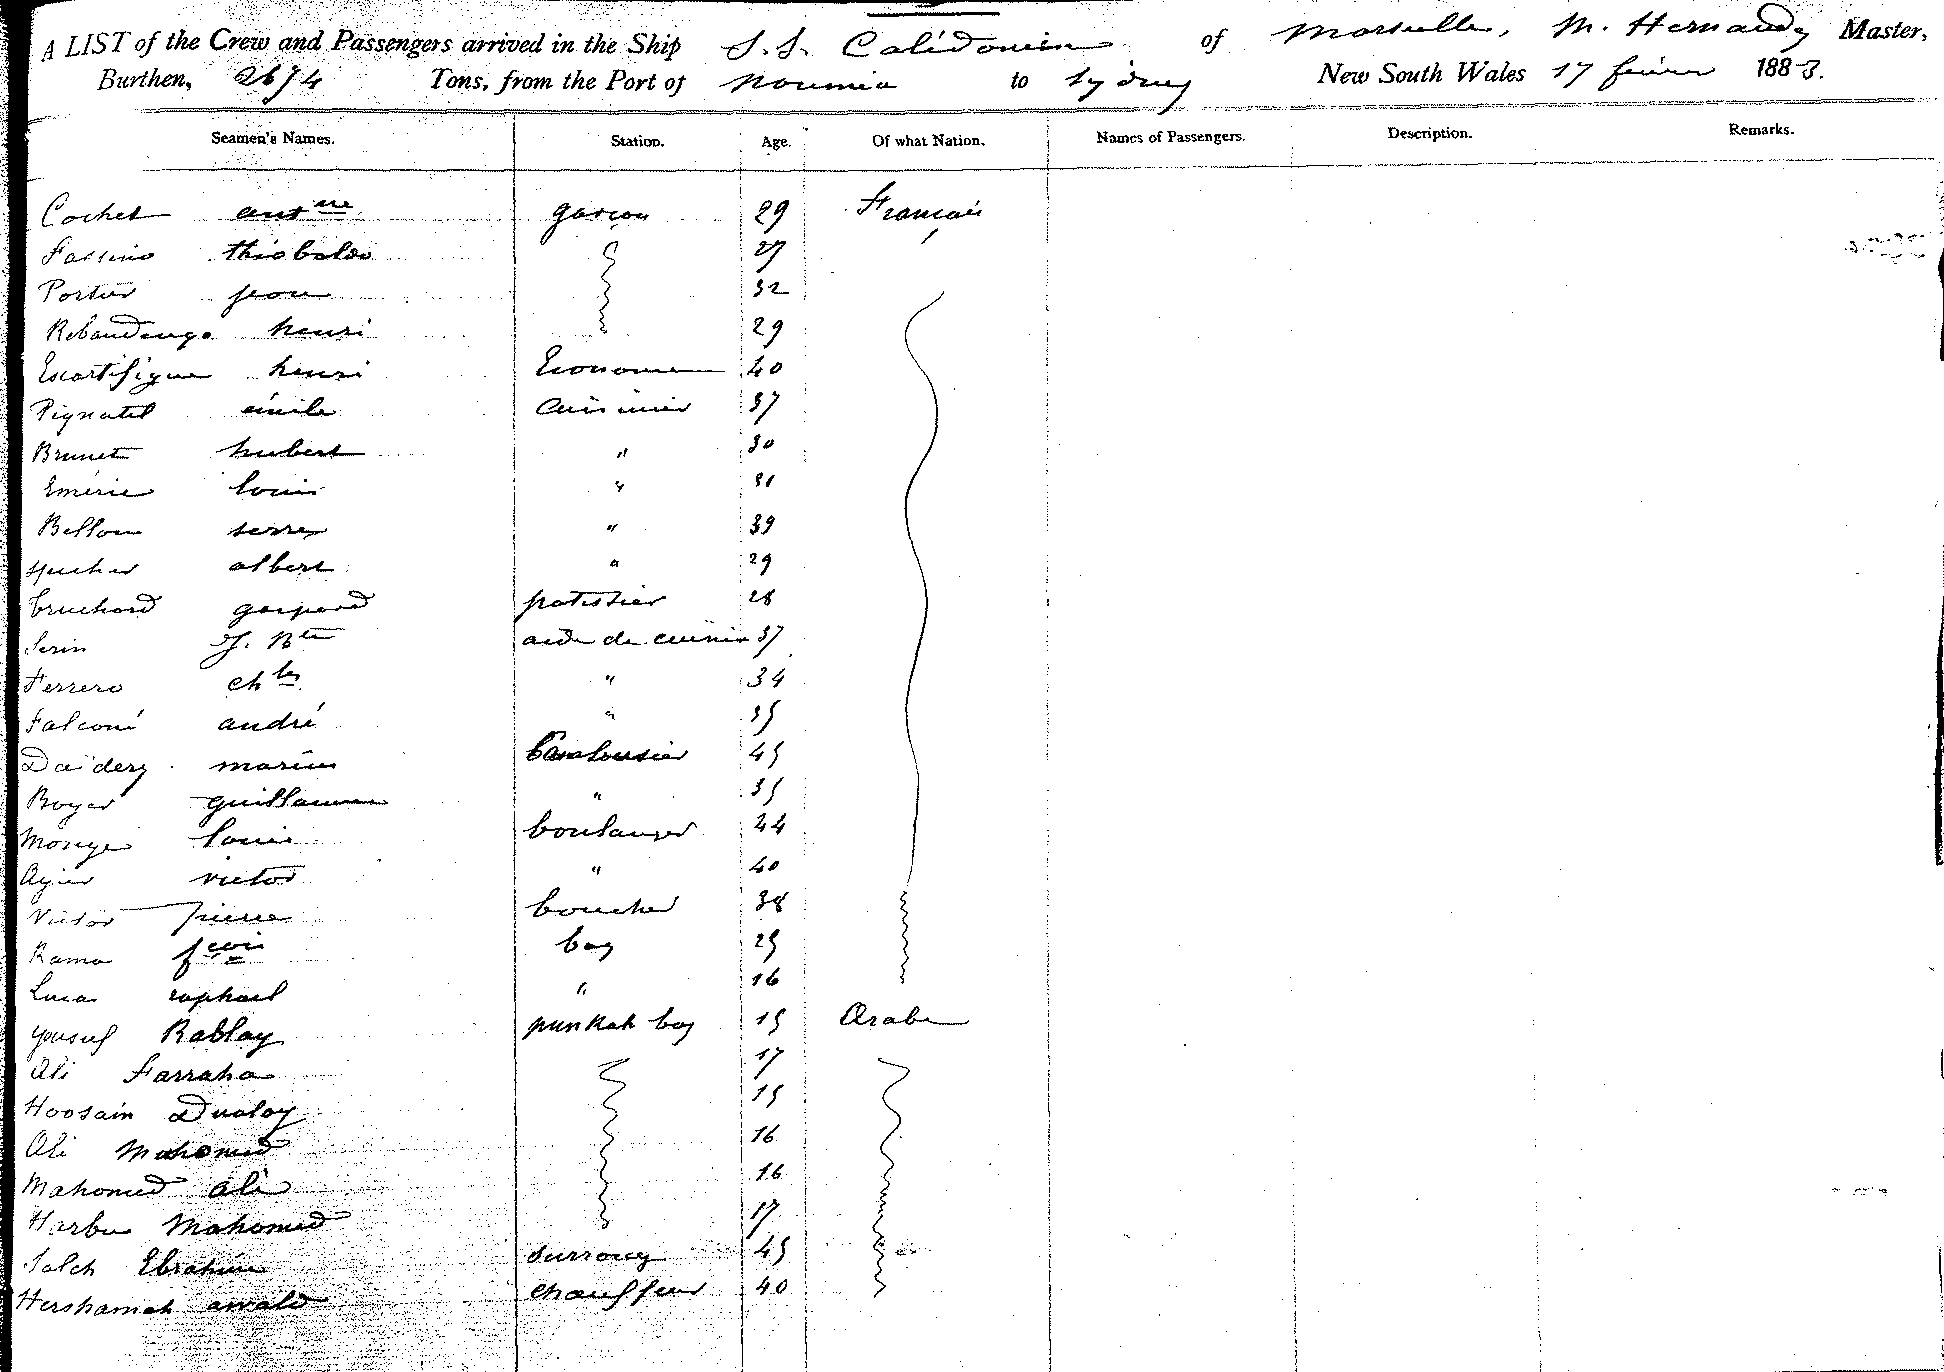 A LIST of the Crew and Passengers arrived in the Ship S. S. Calédonien of Marseille, M. Hernandez Master,
Burthen, 2674 Tons, from the Port of Noumea to Sydney New South Wales 17 fevrier 1883.
Seamen's Names. Station. Age. Of what Nation. Names of Passengers. Description. Remarks.
Cochet antne garçon 29 Français
Fassino 27
Portier jean 32
Rebaudengo henri 29
Escartifigue henri Econome 40
Pignatel émile cuisinier 37
Brunet hubert " 30
Emeric louis " 31
Bellon " 39
albert " 29
Cruchard gaspard patissier 28
Serin J. Bte aide de cuisine 37
Ferrero chles " 34
Falconi andré " 35
Daidery marius Cambusier 45
Boyer guillaume " 35
Monge louis boulanger 44
Agier victor " 40
Victor pierre boucher 38
Rama fcois boy 25
Lucas raphael " 16
yousuf Rablay punkah boy 15 Arabe
Ali Farraha 17
Hoosain Dualay 15
Ali Mahomed 16
Mahomed Ali 16
Harbu Mahomed 17
Saleh Ebrahim surrong 45
Hershamah awald chauffeur 40